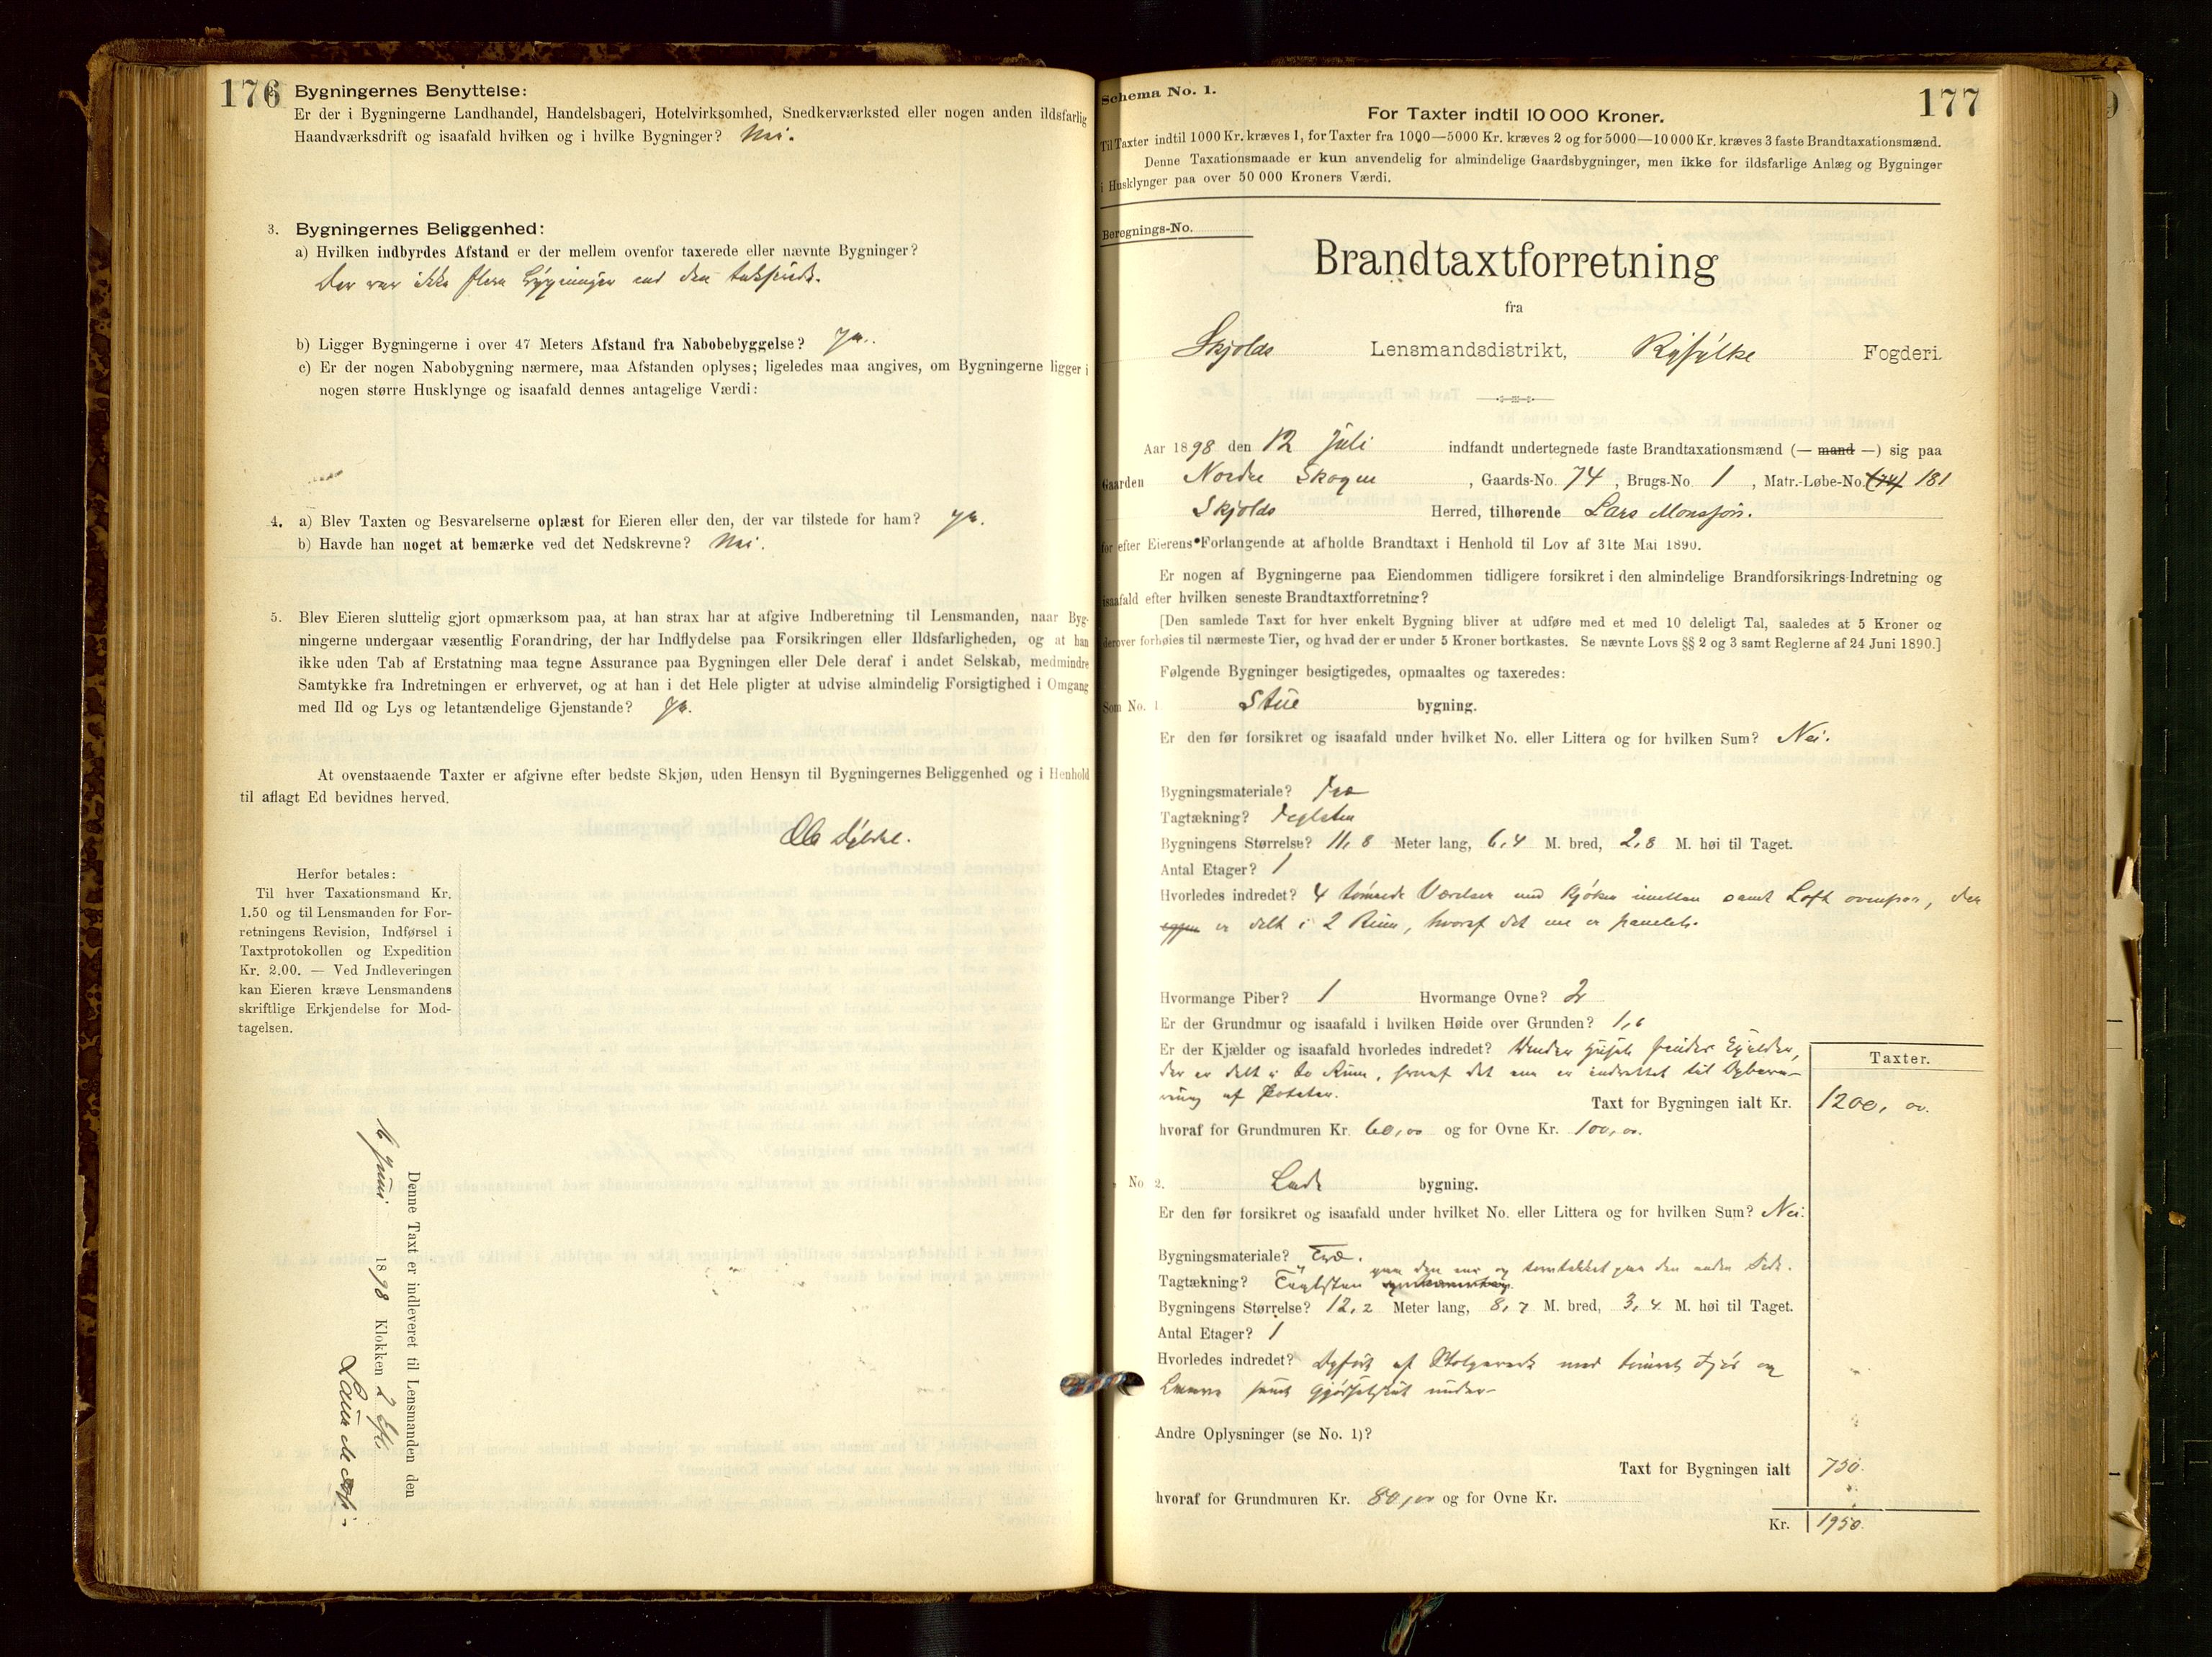 176
2. Bygningernes Benyttelse:
Er der i Bygningerne Landhandel, Handelsbageri, Hotelvirksomhed, Snedkerværksted eller nogen anden ildsfarlig
Haandværksdrift og isaafald hvilken og i hvilke Bygninger? Nei.
3. Bygningernes Beliggenhed:
a) Hvilken indbyrdes Afstand er der mellem ovenfor taxerede eller nævnte Bygninger?
Der var ikke flere Bygninger end den
b) Ligger Bygningerne i over 47 Meters Afstand fra Nabobebyggelse? Ja.
c) Er der nogen Nabobygning nærmere, maa Afstanden oplyses; ligeledes maa angives, om Bygningerne ligger i
nogen større Husklynge og isaafald dennes antagelige Værdi:
4. a) Blev Taxten og Besvarelserne oplæst for Eieren eller den, der var tilstede for ham? Ja.
b) Havde han noget at bemærke ved det Nedskrevne? Nei.
5. Blev Eieren sluttelig gjort opmærksom paa, at han strax har at afgive Indberetning til Lensmanden, naar Byg-
ningerne undergaar væsentlig Forandring, der har Indflydelse paa Forsikringen eller Ildsfarligheden, og at han
ikke uden Tab af Erstatning maa tegne Assurance paa Bygningen eller Dele deraf i andet Selskab, medmindre
Samtykke fra Indretningen er erhvervet, og at han i det Hele pligter at udvise almindelig Forsigtighed i Omgang
med Ild og Lys og letantændelige Gjenstande? Ja.
At ovenstaaende Taxter er afgivne efter bedste Skjøn, uden Hensyn til Bygningernes Beliggenhed og i Henhold
til aflagt Ed bevidnes herved.
Ole
Herfor betales:
Til hver Taxationsmand Kr.
1.50 og til Lensmanden for For-
retningens Revision, Indførsel i
Taxtprotokollen og Expedition
Kr. 2.00. — Ved Indleveringen
kan Eieren kræve Lensmandens
skriftlige Erkjendelse for Mod-
tagelsen.
Denne Taxt er indleveret til Lensmanden den
16 Juni 1898 Klokken 2 Eft.
177
Schema No. 1.
For Taxter indtil 10 000 Kroner.
Til Taxter indtil 1000 Kr. kræves 1, for Taxter fra 1000—5000 Kr. kræves 2 og for 5000—10 000 Kr. kræves 3 faste Brandtaxationsmænd.
Denne Taxationsmaade er kun anvendelig for almindelige Gaardsbygninger, men ikke for ildsfarlige Anlæg og Bygninger
i Husklynger paa over 50 000 Kroners Værdi.
Beregnings-No.
Brandtaxtforretning
fra
Skjolds Lensmandsdistrikt, Ryfylke Fogderi.
Aar 1898 den 12 Juli indfandt undertegnede faste Brandtaxationsmænd (— mand —) sig paa
Gaarden Nordre Skogen, Gaards-No. 74, Brugs-No. 1, Matr.-Løbe-No. (74) 181
Skjolds Herred, tilhørende Lars Monssøn.
for efter Eierens Forlangende at afholde Brandtaxt i Henhold til Lov af 31te Mai 1890.
Er nogen af Bygningerne paa Eiendommen tidligere forsikret i den almindelige Brandforsikrings-Indretning og
isaafald efter hvilken seneste Brandtaxtforretning?
[Den samlede Taxt for hver enkelt Bygning bliver at udføre med et med 10 deleligt Tal, saaledes at 5 Kroner og
derover forhøies til nærmeste Tier, og hvad der er under 5 Kroner bortkastes. Se nævnte Lovs §§ 2 og 3 samt Reglerne af 24 Juni 1890.]
Følgende Bygninger besigtigedes, opmaaltes og taxeredes:
Som No. 1 Stue bygning.
Er den før forsikret og isaafald under hvilket No. eller Littera og for hvilken Sum? Nei.
Bygningsmateriale? Træ
Tagtækning? Teglsten
Bygningens Størrelse? 11,8 Meter lang, 6,4 M. bred, 2,8 M. høi til Taget.
Antal Etager? 1
Hvorledes indredet? 4 tømrede Værelser med Kjøken imellem samt Loft ovenpaa, der
er delt i 2 Rum, hvoraf det ene er panelet.
Hvormange Piber? 1 Hvormange Ovne? 2
Er der Grundmur og isaafald i hvilken Høide over Grunden? 1,6
Er der Kjælder og isaafald hvorledes indredet? Under Huset findes Kjælder,
der er delt i to Rum, hvoraf det ene er indrettet til Opbeva-
ring af Poteter.
Taxter.
Taxt for Bygningen ialt Kr. 1200, oo.
hvoraf for Grundmuren Kr. 60,oo og for Ovne Kr. 100,oo.
No 2. Lade bygning.
Er den før forsikret og isaafald under hvilket No. eller Littera og for hvilken Sum? Nei.
Bygningsmateriale? Træ.
Tagtækning? Teglsten paa den ene og torvtækket paa den anden Side.
Bygningens Størrelse? 12,2 Meter lang, 8,7 M. bred, 3,4 M. høi til Taget.
Antal Etager? 1
Hvorledes indredet? Opført af Stolpeverk med tømret Fjøs og
samt under-
Andre Oplysninger (se No. 1)?
Taxt for Bygningen ialt 750.
hvoraf for Grundmuren Kr. 80,oo og for Ovne Kr.
Kr. 1950.